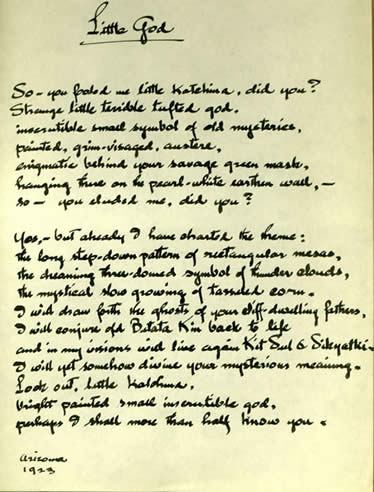 Little God
So – you fooled me little Katchina, did you?
Strange little terrible tufted god,
inscrutible small symbol of old mysteries,
painted, grim-visaged, austere,
enigmatic behind your savage green mask,
hanging there on the pearl-white earthen wall, –
so – you eluded me, did you?
Yes, – but already I have charted the theme:
the long step-down pattern of rectangular mesas,
the dreaming three-domed symbol of thunder clouds,
the mystical slow growing of tasseled corn.
I will draw forth the ghosts of your cliff-dwelling fathers,
I will conjure old Batata Kin back to life
and in my visions will live again Kit Sul & Sikyatki –
I will yet somehow divine your mysterious meaning.
Look out, little Katchina,
bright painted small inscrutible god,
perhaps I shall more than half know you.
Arizona
1923